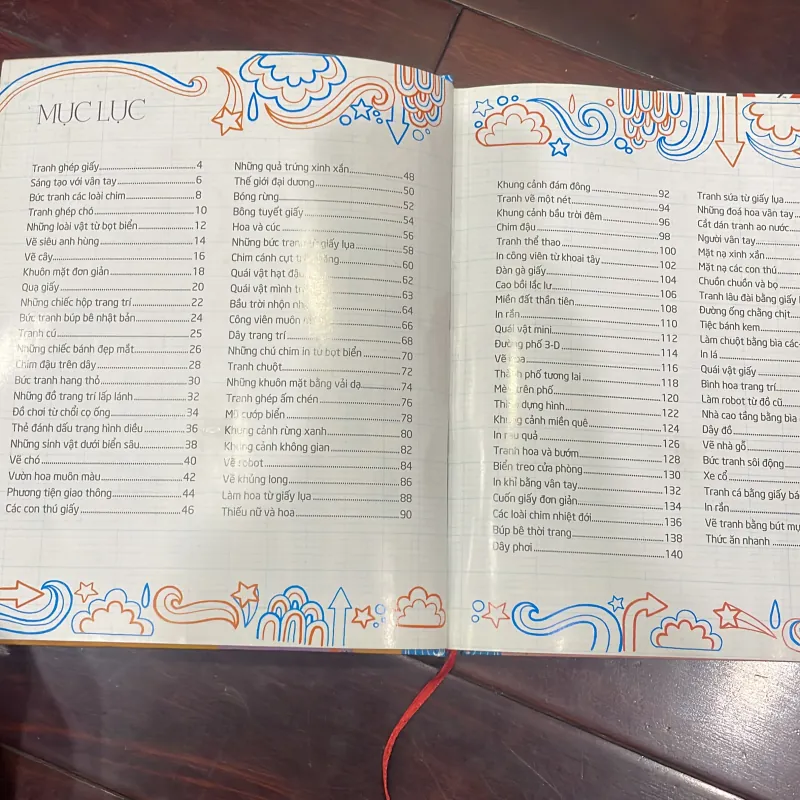 MỤC LỤC
Tranh ghép giấy 4
Sáng tạo với vân tay 6
Bức tranh các loài chim 8
Tranh ghép chó 10
Những loài vật từ bọt biển 12
Vẽ siêu anh hùng 14
Vẽ cây 16
Khuôn mặt đơn giản 18
Quạ giấy 20
Những chiếc hộp trang trí 22
Bức tranh búp bê nhật bản 24
Tranh cú 25
Những chiếc bánh đẹp mắt 26
Chim đậu trên dây 28
Bức tranh hang thỏ 30
Những đồ trang trí lấp lánh 32
Đồ chơi từ chổi cọ ống 34
Thẻ đánh dấu trang hình diều 36
Những sinh vật dưới biển sâu 38
Vẽ chó 40
Vườn hoa muôn màu 42
Phương tiện giao thông 44
Các con thú giấy 46
Những quả trứng xinh xắn 48
Thế giới đại dương 50
Bóng rừng 52
Bông tuyết giấy 54
Hoa và cúc 56
Những bức tranh giấy lụa 58
Chim cánh cụt 60
Quái vật hạt đậu 62
Quái vật mình 63
Bầu trời nhộn 64
Công viên muôn 66
Dây trang trí 68
Những chú chim in từ bọt biển 70
Tranh chuột 72
Những khuôn mặt bằng vải dạ 74
Tranh ghép ấm chén 76
Mũ cướp biển 78
Khung cảnh rừng xanh 80
Khung cảnh không gian 82
Vẽ robot 84
Vẽ khủng long 86
Làm hoa từ giấy lụa 88
Thiếu nữ và hoa 90
Khung cảnh đám đông 92
Tranh vẽ một nét 94
Khung cảnh bầu trời đêm 96
Chim đậu 98
Tranh thể thao 100
In công viên từ khoai tây 102
Đàn gà giấy 104
Cao bồi lắc lư 106
Miền đất thần tiên 108
In rắn 110
Quái vật mini 112
Đường phố 3-D 114
Vẽ hoa 116
Thành phố tương lai 118
Mèo trên phố 120
Thiệp dựng hình 122
Khung cảnh miền quê 124
In rau quả 126
Tranh hoa và bướm 128
Biển treo cửa phòng 130
In khỉ bằng vân tay 132
Cuốn giấy đơn giản 134
Các loài chim nhiệt đới 136
Búp bê thời trang 138
Dây phơi 140
Tranh sứa từ giấy lụa
Những đoá hoa vân tay
Cắt dán tranh ao nước
Người vân tay
Mặt nạ xinh xắn
Mặt nạ các con thú
Chuồn chuồn và bọ
Tranh lâu đài bằng giấy
Đường ống chằng chịt
Tiệc bánh kem
Làm chuột bằng bìa các
In lá
Quái vật giấy
Bình hoa trang trí
Làm robot từ đồ cũ
Nhà cao tầng bằng bìa
Dây đồ
Vẽ nhà gỗ
Bức tranh sôi động
Xe cổ
Tranh cá bằng giấy
In rắn
Vẽ tranh bằng bút
Thức ăn nhanh